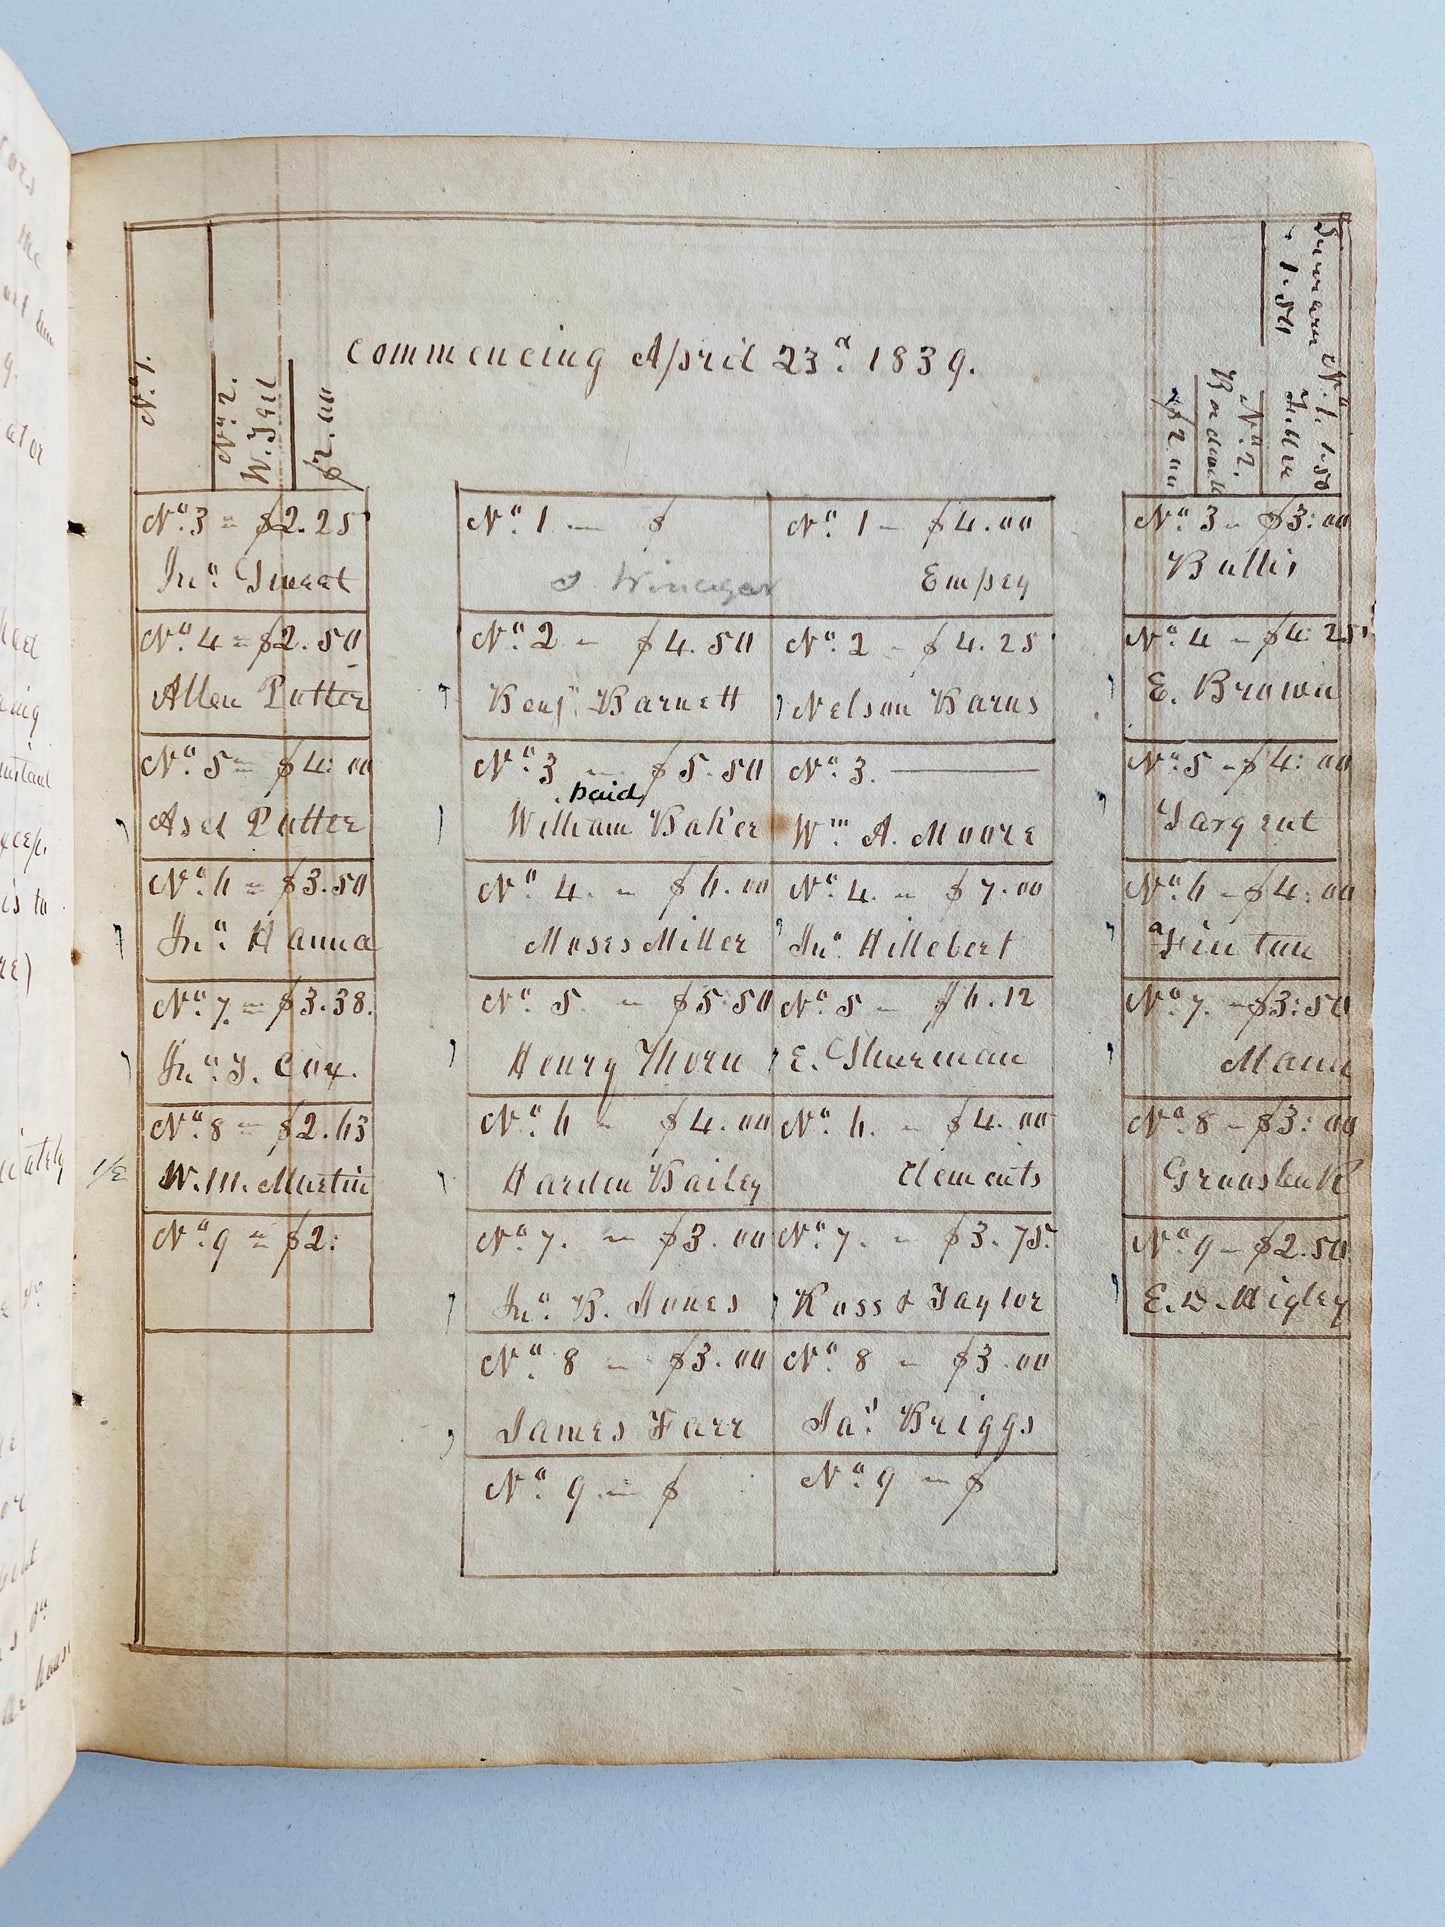 Commencing April 23d 1839.
No. 1.
No. 2.
W. Teil
$2.00
No. 3 = $2.25
Jno. Sweet
No. 4 = $2.50
Allen Potter
No. 5 = $4:00
Asel Potter
No. 6 = $3.50
Jno. Hanna
No. 7. = $3.38.
Jno. T. Cox.
No. 8 = $2.63
W. M. Martin
No. 9 = $2:
No. 1 — $
Winegar
No. 2 - $4.50
Benjn Barnett
No. 3 - $5.50
paid
William Baker
No. 4. - $6.00
Moses Miller
No. 5 - $5.50
Henry Thorn
No. 6 - $4.00
Harden Bailey
No. 7. - $3.00
Jno. B. Jones
No. 8 - $3.00
James Farr
No. 9 - $
No. 1 - $4.00
Empey
No. 2 - $4.25
Nelson Barns
No. 3. —
Wm A. Moore
No. 4. - $7.00
Jno. Hillebert
No. 5 - $6.12
E. Shurman
No. 6. - $4.00
Clements
No. 7. - $3.75.
Ross & Taylor
No. 8 - $3.00
Jas Briggs
No. 9 - $
$2.00
No. 2.
1.50
No. 1. 1.50
No. 3 - $3:00
Bullis
No. 4 - $4:25
E. Brown
No. 5 - $4:00
Sargent
No. 6 - $4:00
Finton
No. 7. - $3:50
Mann
No. 8 - $3:00
Groosbeck
No. 9 - $2.50
E. D. Higley